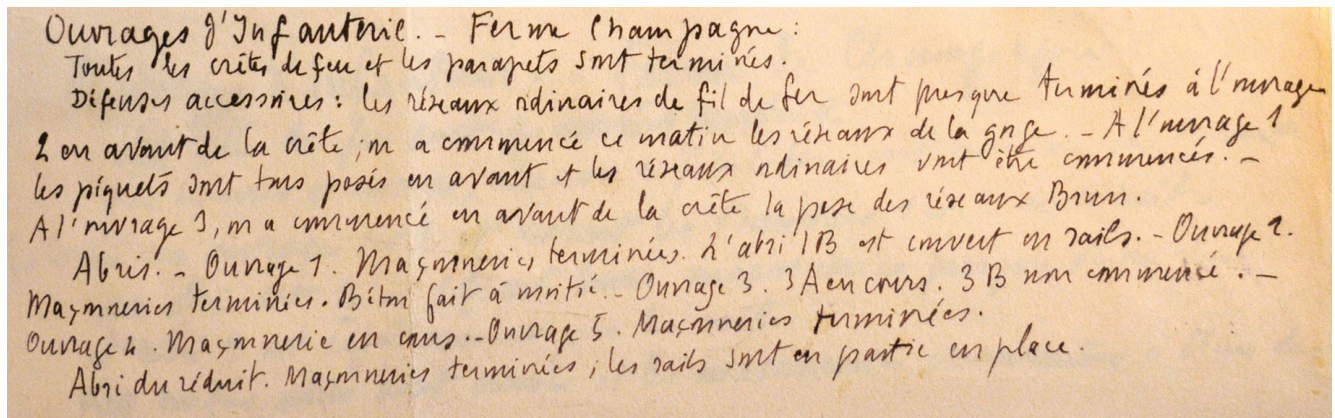 Ouvrages d'Infanterie. - Ferme Champagne :
Toutes les crêtes de feu et les parapets sont terminés.
Défenses accessoires : les réseaux ordinaires de fil de fer sont presque terminés à l'ouvrage
2 en avant de la crête ; on a commencé ce matin les réseaux de la gorge. - A l'ouvrage 1
les piquets sont tous posés en avant et les réseaux ordinaires vont être commencés. -
A l'ouvrage 3, on a commencé en avant de la crête la pose des réseaux Brun.
Abris. - Ouvrage 1. Maçonneries terminées. L'abri 1B est couvert en rails. - Ouvrage 2.
Maçonneries terminées. Béton fait à moitié. - Ouvrage 3. 3A en cours. 3B non commencé. -
Ouvrage 4. Maçonnerie en cours. - Ouvrage 5. Maçonneries terminées.
Abri du réduit. Maçonneries terminées ; les rails sont en partie en place.